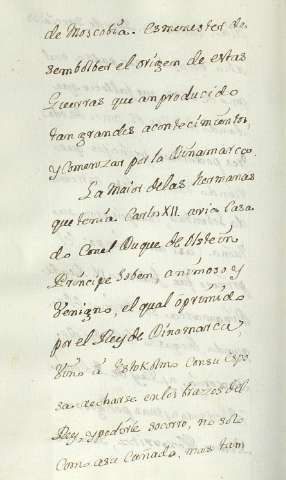 de Moscobia. es menester de
sembolber el origen de estas
Guerras que an producido
tan grandes acontecimientos
y Comenzar por la Dinamarca.
La maior de las hermanas
que tenia Carlos XII. avia Casa
do Con el Duque de Olstein
Principe Joben, animoso y
Venigno, el qual oprimido
por el Rey de Dinamarca,
Vino â Estokolmo Con su Espo
sa, a echarse en los brazos del
Rey, y pedirle socorro, no solo
Como a su Cuñado, mas tam